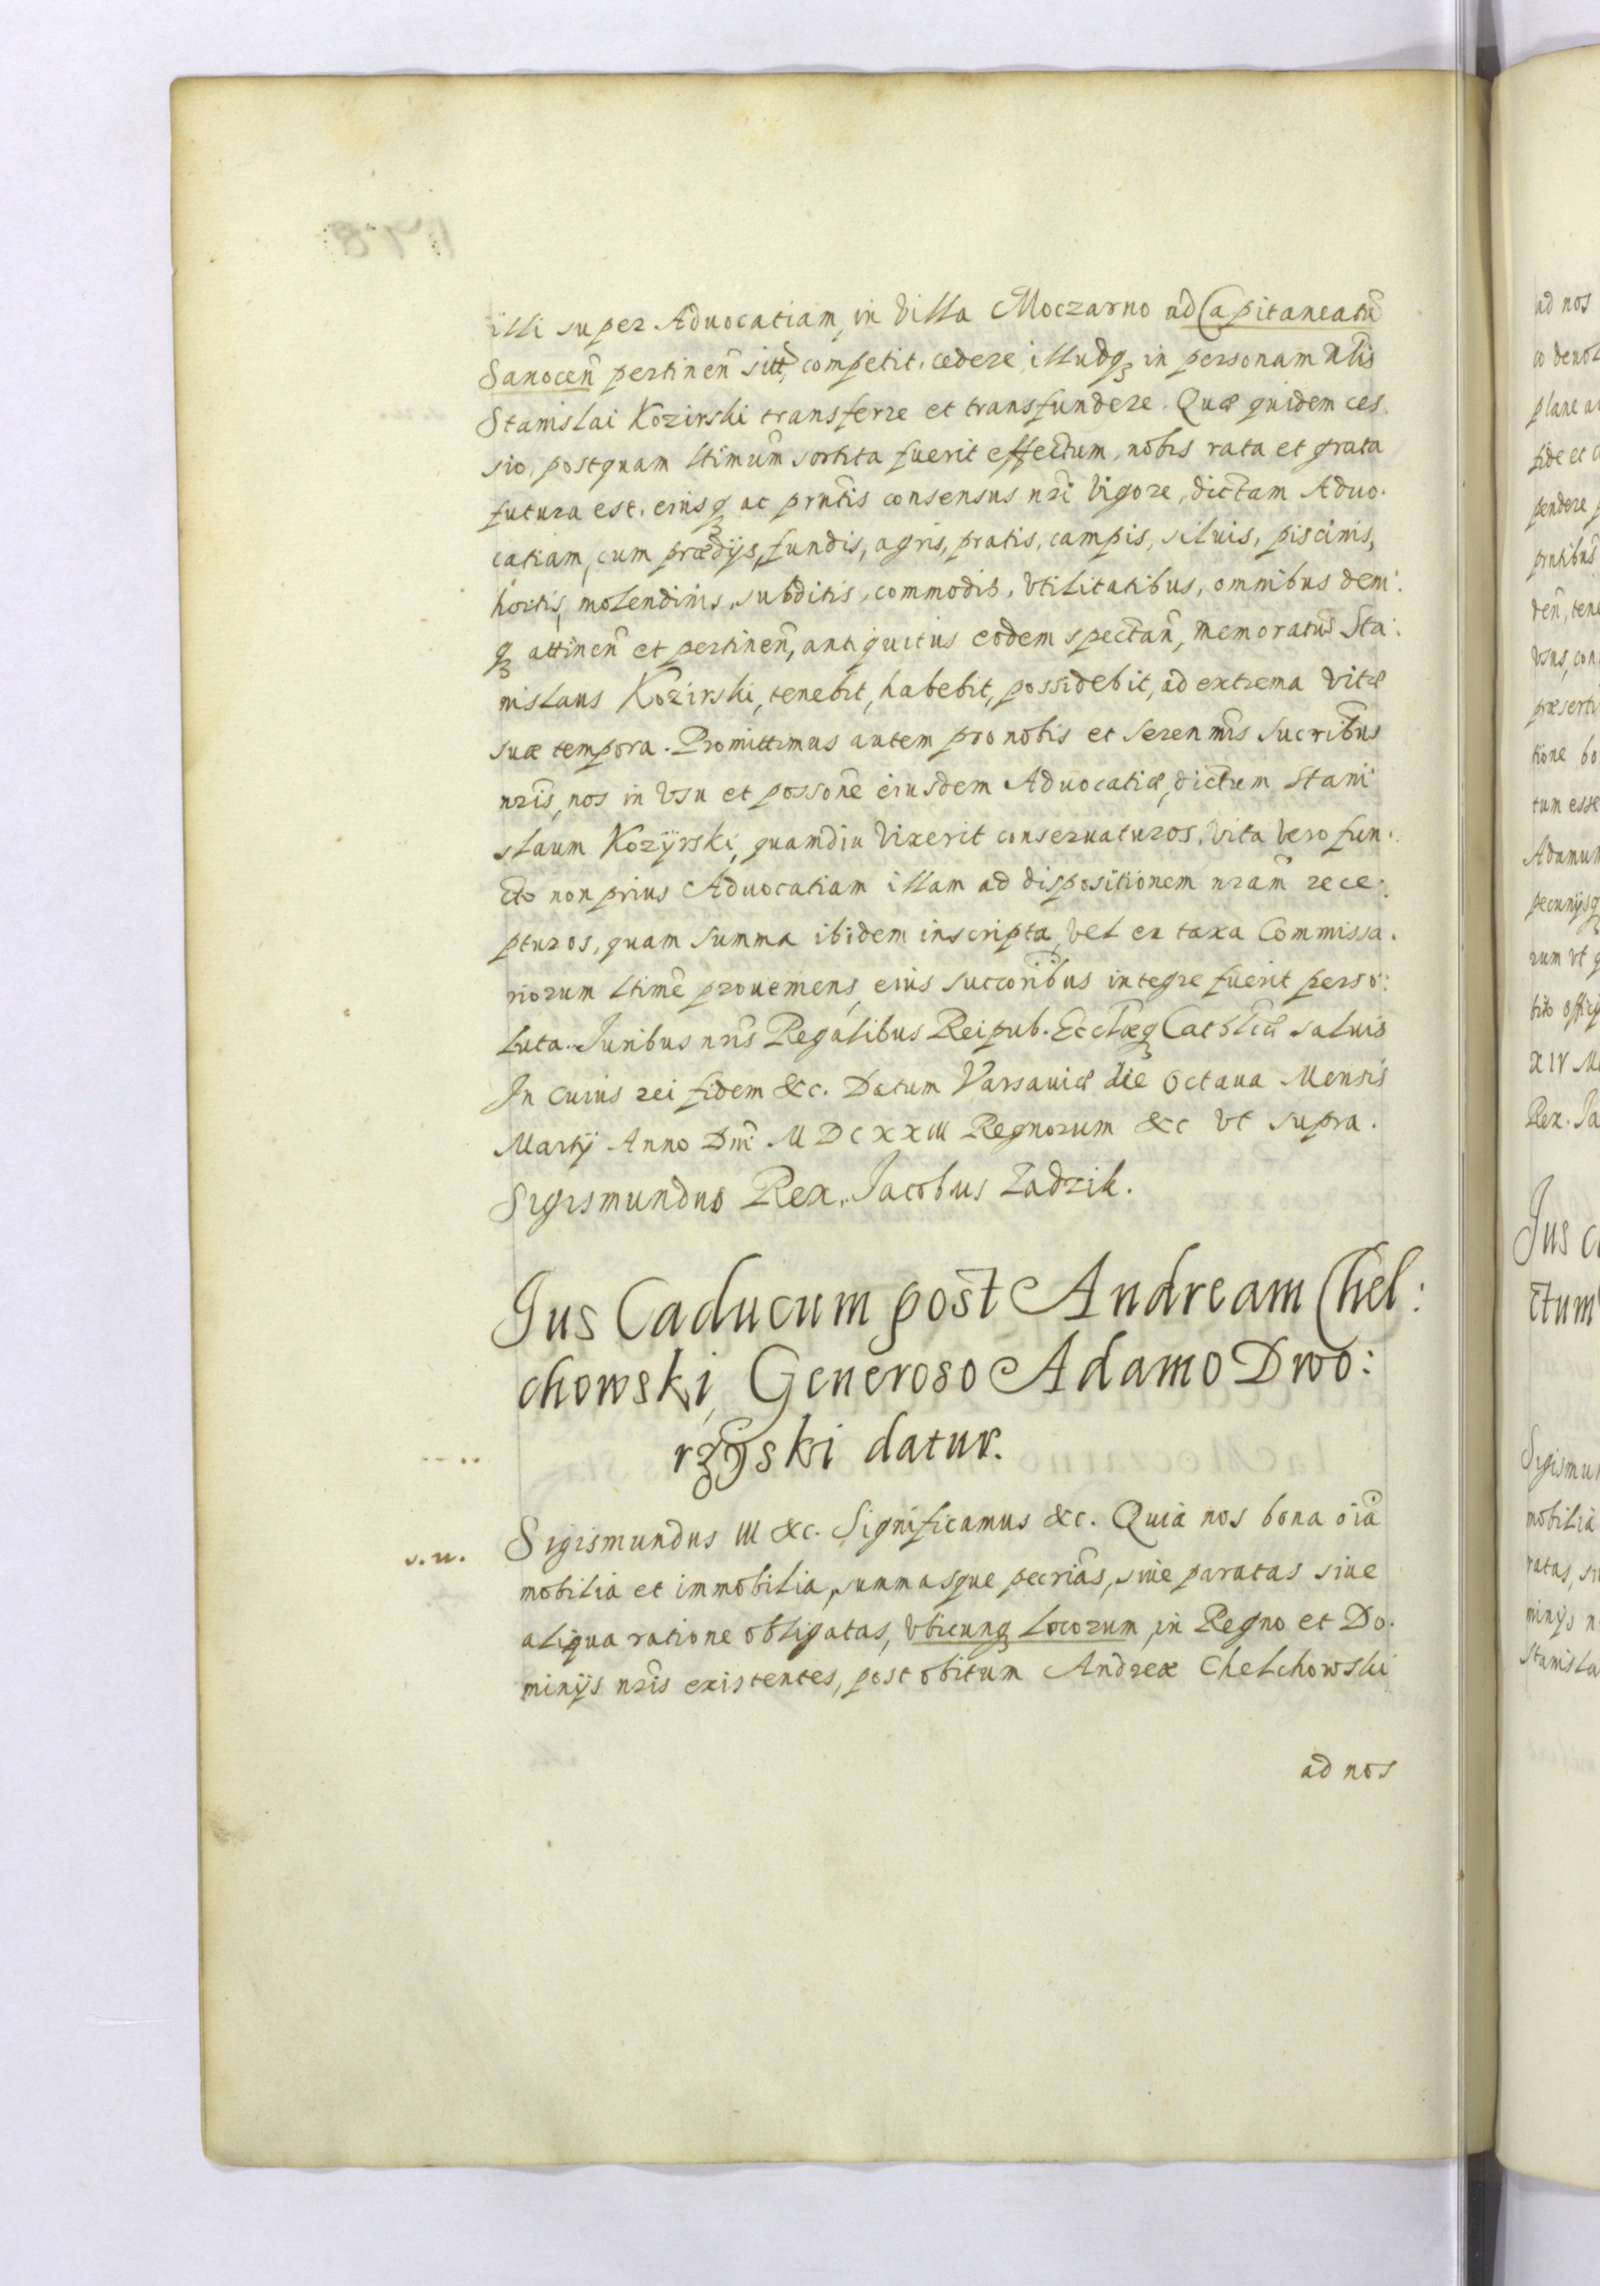 illi super Aduocatiam, in Villa Moczarno ad Capitaneatũ
Sanoceñ pertineñ sitã, competit, cedere, illudq₃ in personam nlis
Stanislai Kozirski transferre et transfundere. Quæ quidem ces
sio, postquam ltimum̃ sortita fuerit effectum, nobis rata et grata
futura est. eiusq₃ ac prntis consensus nri vigore, dictam Aduo.
catiam, cum prædijs, fundis, agris, pratis, campis, siluis, piscinis,
hortis, molendinis, subditis, commodis, vtilitatibus, omnibus dem:
q₃ attineñ et pertineñ, antiquitus eodem spectañ, memoratus Sta:
nislaus Kozirski, tenebit, habebit, possidebit, ad extrema vitæ
suæ tempora. Promittimus autem pro nobis et Seren mis Sucribus
nris, nos in vsu et possone eiusdem Aduocatiæ, dictum Stani
slaum Kozÿrski, quamdiu vixerit conseruaturos. Vita vero fun:
cto non prius Aduocatiam illam ad dispositionem nram rece:
pturos, quam summa ibidem inscripta, vel ex taxa Commissa.
riorum ltime proueniens, eius succoribus integre fuerit perso:
luta. Juribus nris Regalibus Reipub. Ecclæq₃ Catolicæ saluis
In cuius rei fidem &c. Datum Varsauiæ die Octaua Mensis
Martij Anno Dni MDCXXIII Regnorum &c vt supra.
Sigismundus Rex. Jacobus Zadzik.
Jus Caducum post Andream Chel:
chowski, Generoso Adamo Dwo:
rzÿski datur.
s.n. Sigismundus III &c. Significamus &c. Quia nos bona oia
mobilia et immobilia, summasque pecrias, siue paratas siue
aliqua ratione obligatas, vbicunq₃ locorum, in Regno et Do.
minijs nris existentes, post obitum Andreæ Chelchowski
ad nos